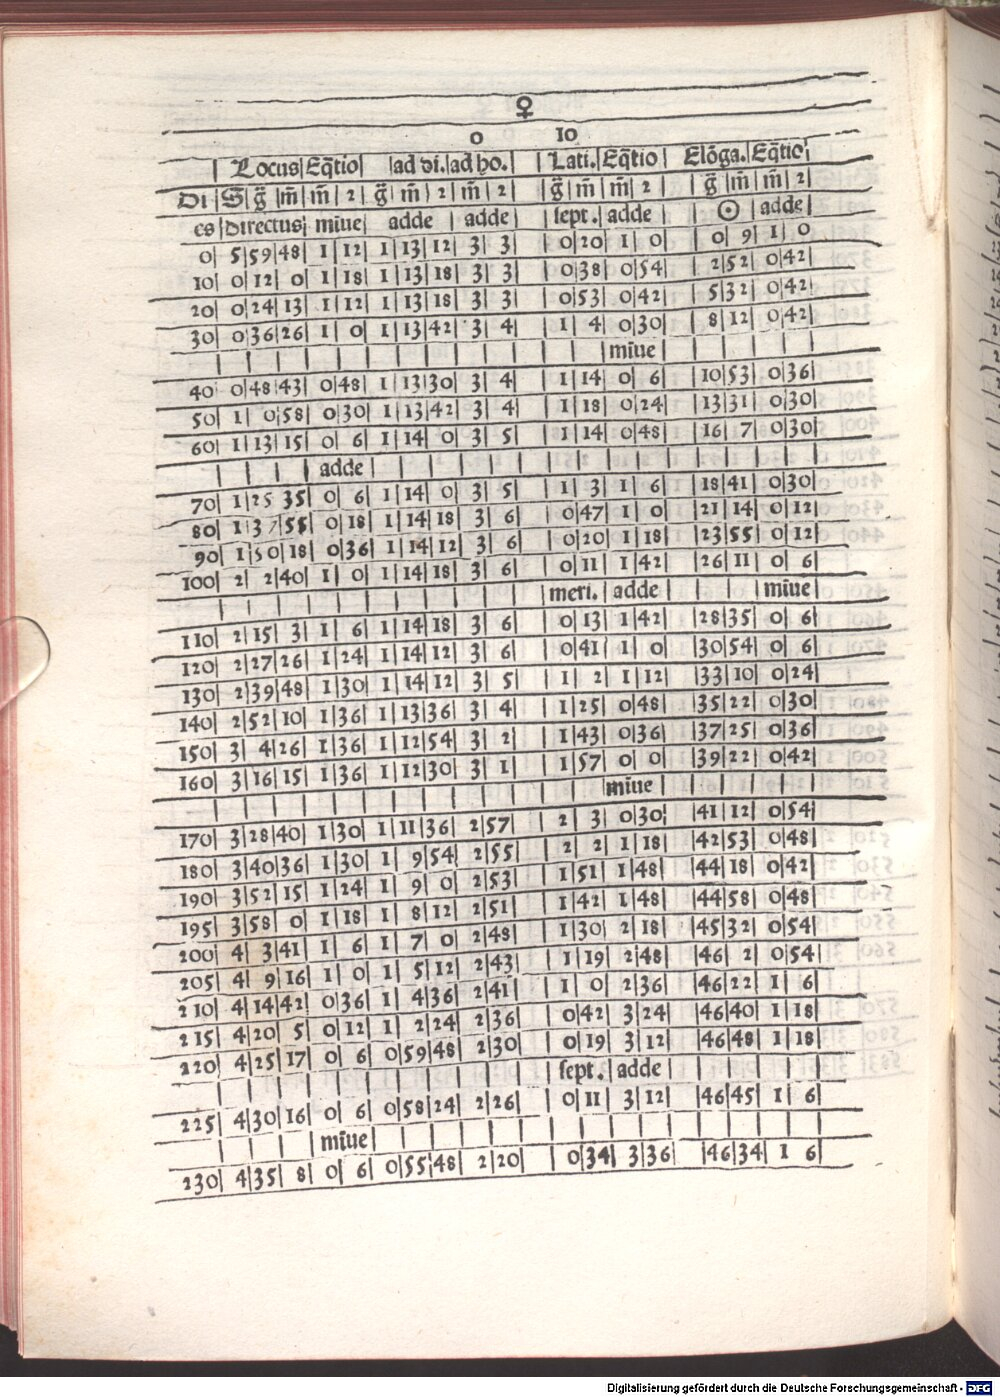 ♀
0 10
Locus Eq̃tio ad di. ad ho. Lati. Eq̃tio Elõga. Eq̃tio
Di S g̃ m̃ m̃ 2 g̃ m̃ 2 m̃ 2 g̃ m̃ m̃ 2 g̃ m̃ m̃ 2
es directus miñue adde adde sept. adde ☉ adde
0 5 59 48 1 12 1 13 12 3 3 0 20 1 0 0 9 1 0
10 0 12 0 1 18 1 13 18 3 3 0 38 0 54 2 52 0 42
20 0 24 13 1 12 1 13 18 3 3 0 53 0 42 5 32 0 42
30 0 36 26 1 0 1 13 42 3 4 1 4 0 30 8 12 0 42
miñue
40 0 48 43 0 48 1 13 30 3 4 1 14 0 6 10 53 0 36
50 1 0 58 0 30 1 13 42 3 4 1 18 0 24 13 31 0 30
60 1 13 15 0 6 1 14 0 3 5 1 14 0 48 16 7 0 30
adde
70 1 25 35 0 6 1 14 0 3 5 1 3 1 6 18 41 0 30
80 1 37 55 0 18 1 14 18 3 6 0 47 1 0 21 14 0 12
90 1 50 18 0 36 1 14 12 3 6 0 20 1 18 23 55 0 12
100 2 2 40 1 0 1 14 18 3 6 0 11 1 42 26 11 0 6
meri. adde miñue
110 2 15 3 1 6 1 14 18 3 6 0 13 1 42 28 35 0 6
120 2 27 26 1 24 1 14 12 3 6 0 41 1 0 30 54 0 6
130 2 39 48 1 30 1 14 12 3 5 1 2 1 12 33 10 0 24
140 2 52 10 1 36 1 13 36 3 4 1 25 0 48 35 22 0 30
150 3 4 26 1 36 1 12 54 3 2 1 43 0 36 37 25 0 36
160 3 16 15 1 36 1 12 30 3 1 1 57 0 0 39 22 0 42
miñue
170 3 28 40 1 30 1 11 36 2 57 2 3 0 30 41 12 0 54
180 3 40 36 1 30 1 9 54 2 55 2 2 1 18 42 53 0 48
190 3 52 15 1 24 1 9 0 2 53 1 51 1 48 44 18 0 42
195 3 58 0 1 18 1 8 12 2 51 1 42 1 48 44 58 0 48
200 4 3 41 1 6 1 7 0 2 48 1 30 2 18 45 32 0 54
205 4 9 16 1 0 1 5 12 2 43 1 19 2 48 46 2 0 54
210 4 14 42 0 36 1 4 36 2 41 1 0 2 36 46 22 1 6
215 4 20 5 0 12 1 2 24 2 36 0 42 3 24 46 40 1 18
220 4 25 17 0 6 0 59 48 2 30 0 19 3 12 46 48 1 18
sept. adde
225 4 30 16 0 6 0 58 24 2 26 0 11 3 12 46 45 1 6
miñue
230 4 35 8 0 6 0 55 48 2 20 0 34 3 36 46 34 1 6
Digitalisierung gefördert durch die Deutsche Forschungsgemeinschaft - DFG